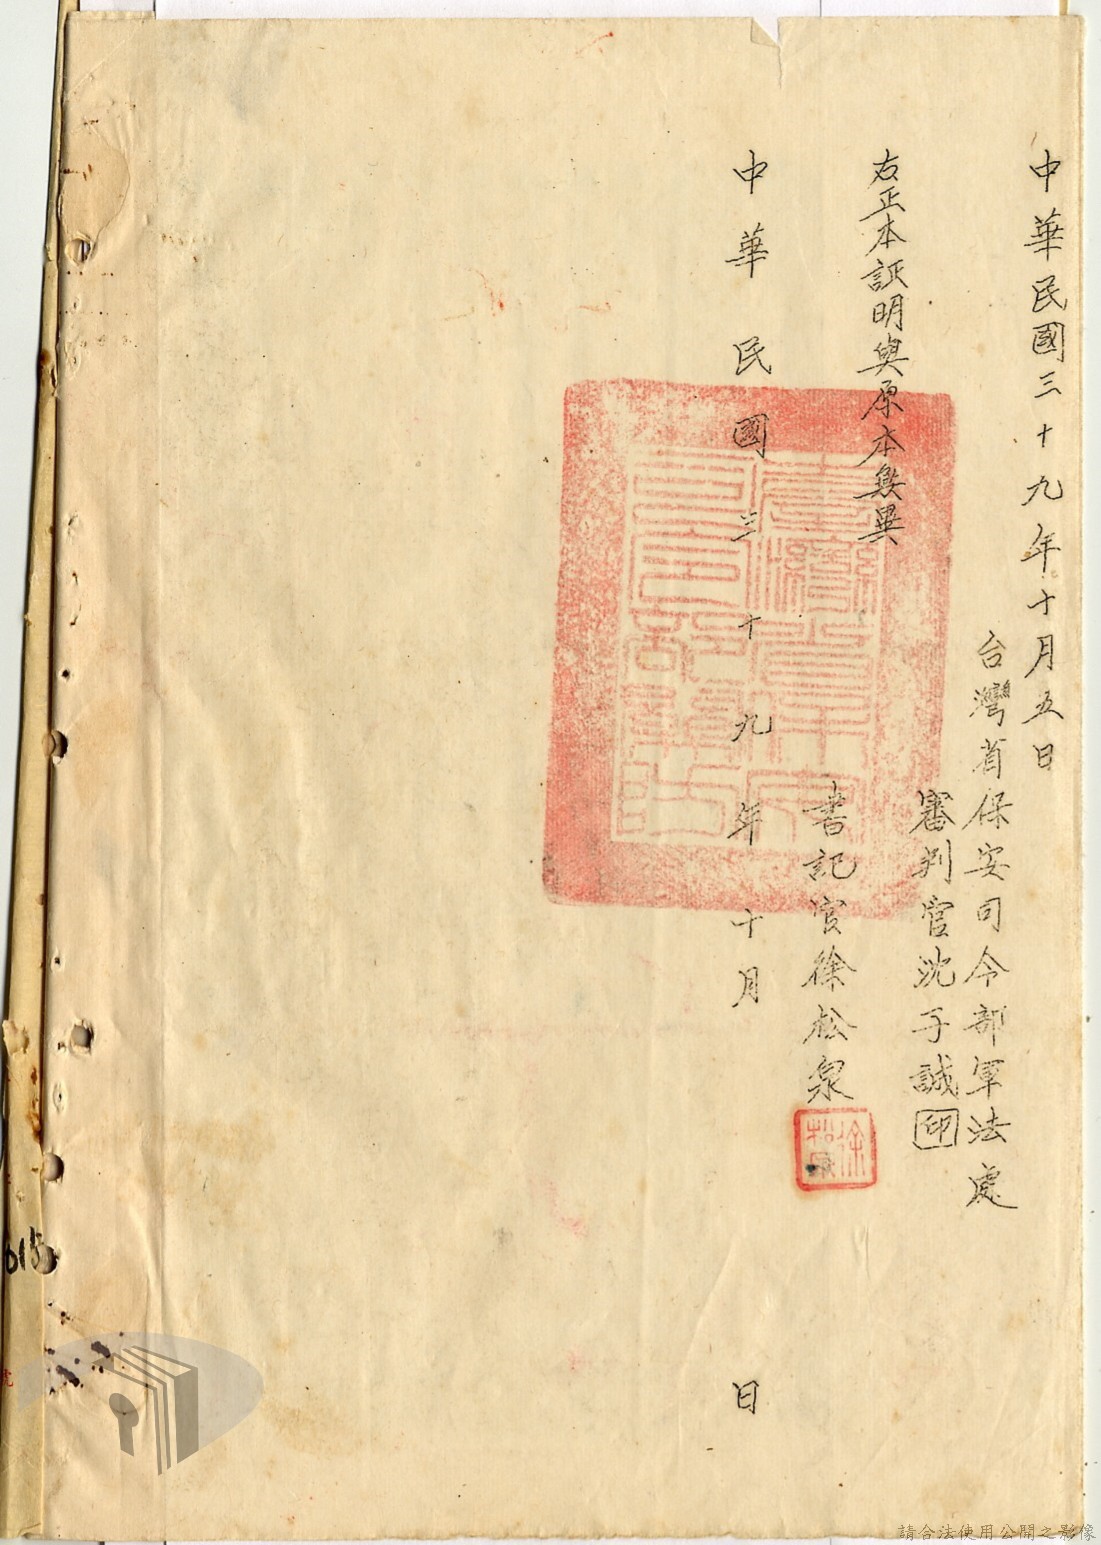 中華民國三十九年十月五日
台灣省保安司令部軍法處
審判官沈子誠印
右正本証明與原本無異
書記官徐松泉
徐松泉
中華民國三十九年十月 日
615
請合法使用公開之影像